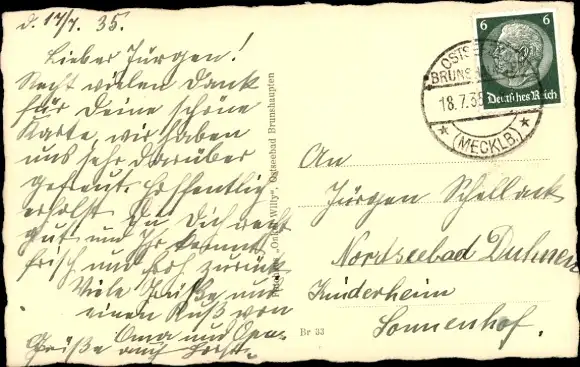 d. 17/7. 35.
Lieber Jürgen!
Recht vielen Dank
für Deine schöne
Karte, wir haben
uns sehr darüber
gefreut. Hoffentlich
erholst Du Dich recht
gut und Ihr kommt
frisch und froh zurück
Viele Grüße und
einen Kuß von
Oma und Opa.
Grüße auch
Ostseebad Brunshaupten
Br 33
6 6
Deutsches Reich
OSTSE
BRUNS
18.7.35
(MECKLB.)
An
Jürgen Schellack
Nordseebad Duhnen
Kinderheim
Sonnenhof.